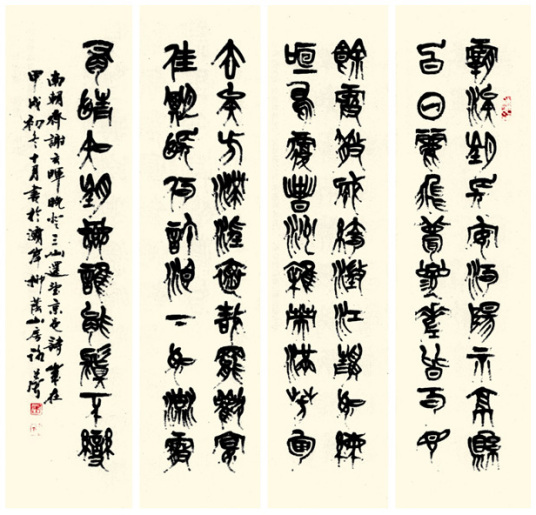 灞涘望長安河陽視京縣
白日麗飛甍參差皆可見
餘霞散成綺澄江靜如練
喧鳥覆春洲雜英滿芳甸
去矣方滯淫懷哉罷歡宴
佳期悵何許淚下如流霰
有情知望鄉誰能鬒不變
南朝齊謝玄暉晚登三山還望京邑詩歲在
甲戌初冬十月書於柳蔭山房